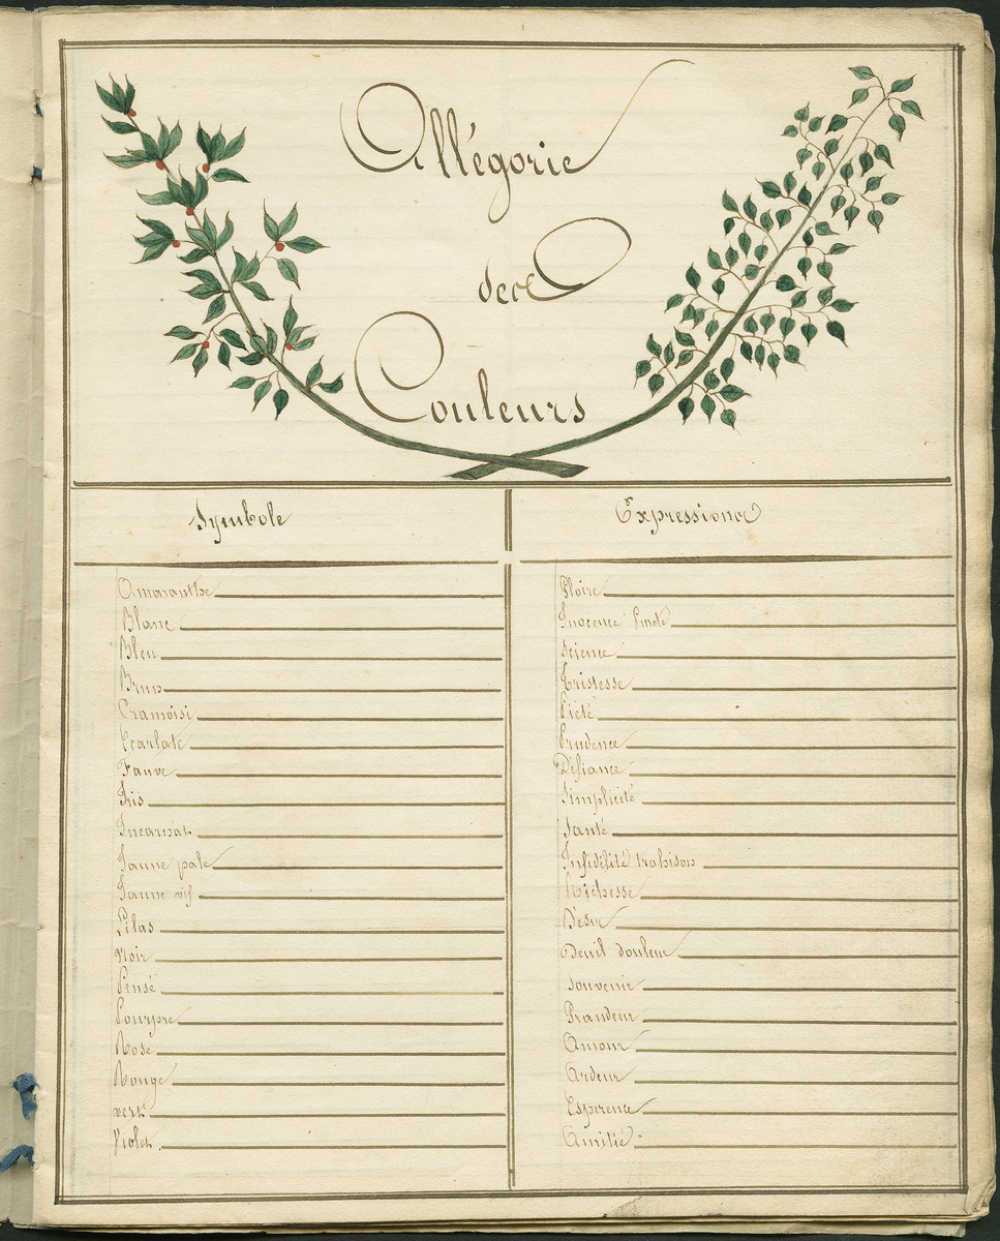 Allégorie
des
Couleurs
Symbole Expressions
Amaranthe Gloire
Blanc Inocence Pureté
Bleu Science
Brun Tristesse
Cramoisi Piété
Ecarlate Prudence
Fauve Défiance
Gris Simplicité
Incarnat Santé
Jaune pale Infidélité trahison
Jaune vif Richesse
Lilas Désir
Noir Deuil douleur
Pensé souvenir
Pourpre Grandeur
Rosé Amour
Rouge Ardeur
vert Esperence
Violet Amitié